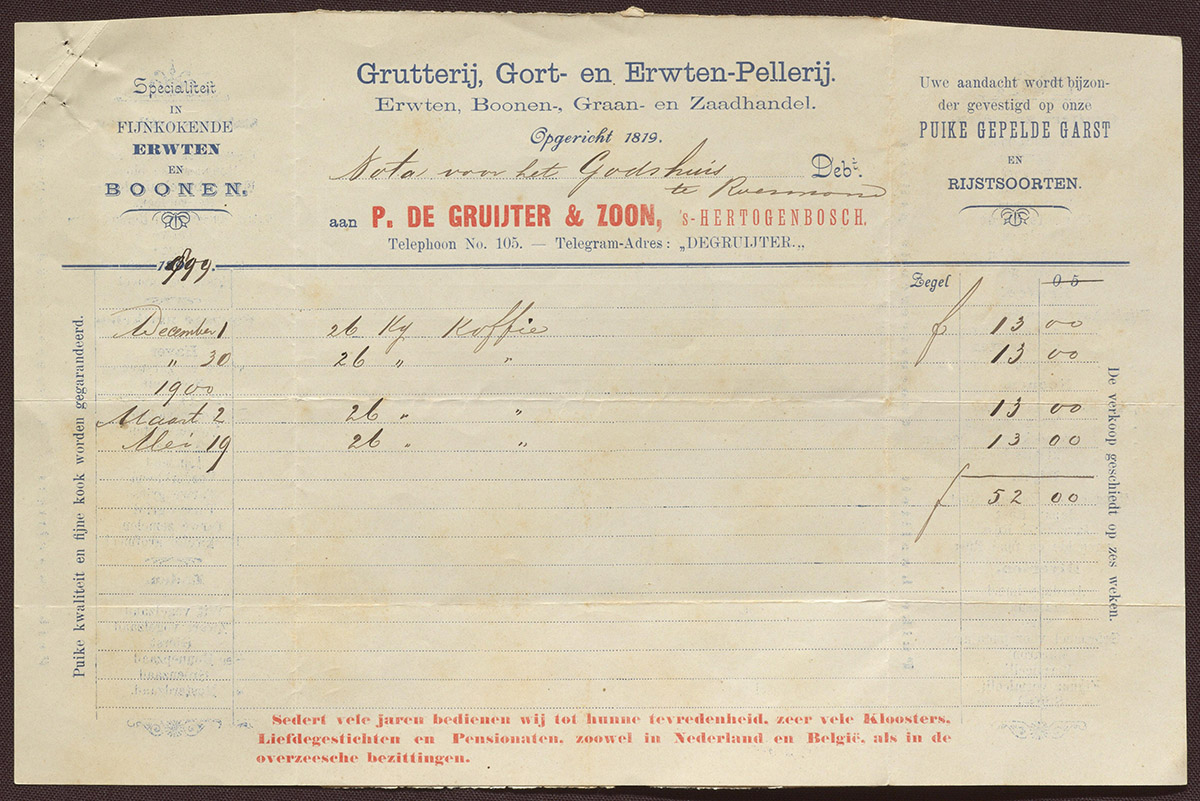 Specialiteit
IN
FIJNKOKENDE
ERWTEN
EN
BOONEN.
Grutterij, Gort- en Erwten-Pellerij.
Erwten, Boonen-, Graan- en Zaadhandel.
Opgericht 1819.
Nota voor het Godshuis Debt.
te Roermond
aan P. DE GRUIJTER & ZOON, 's-HERTOGENBOSCH.
Telephoon No. 105. — Telegram-Adres: „DEGRUIJTER.„
Uwe aandacht wordt bijzon-
der gevestigd op onze
PUIKE GEPELDE GARST
EN
RIJSTSOORTEN.
1899.
Zegel 05
December 1 26 Kg Koffie f 13 00
„ 30 26 „ „ 13 00
1900
Maart 2 26 „ „ 13 00
Mei 19 26 „ „ 13 00
f 52 00
Puike kwaliteit en fijne kook worden gegarandeerd.
De verkoop geschiedt op zes weken.
Sedert vele jaren bedienen wij tot hunne tevredenheid, zeer vele Kloosters,
Liefdegestichten en Pensionaten, zoowel in Nederland en België, als in de
overzeesche bezittingen.